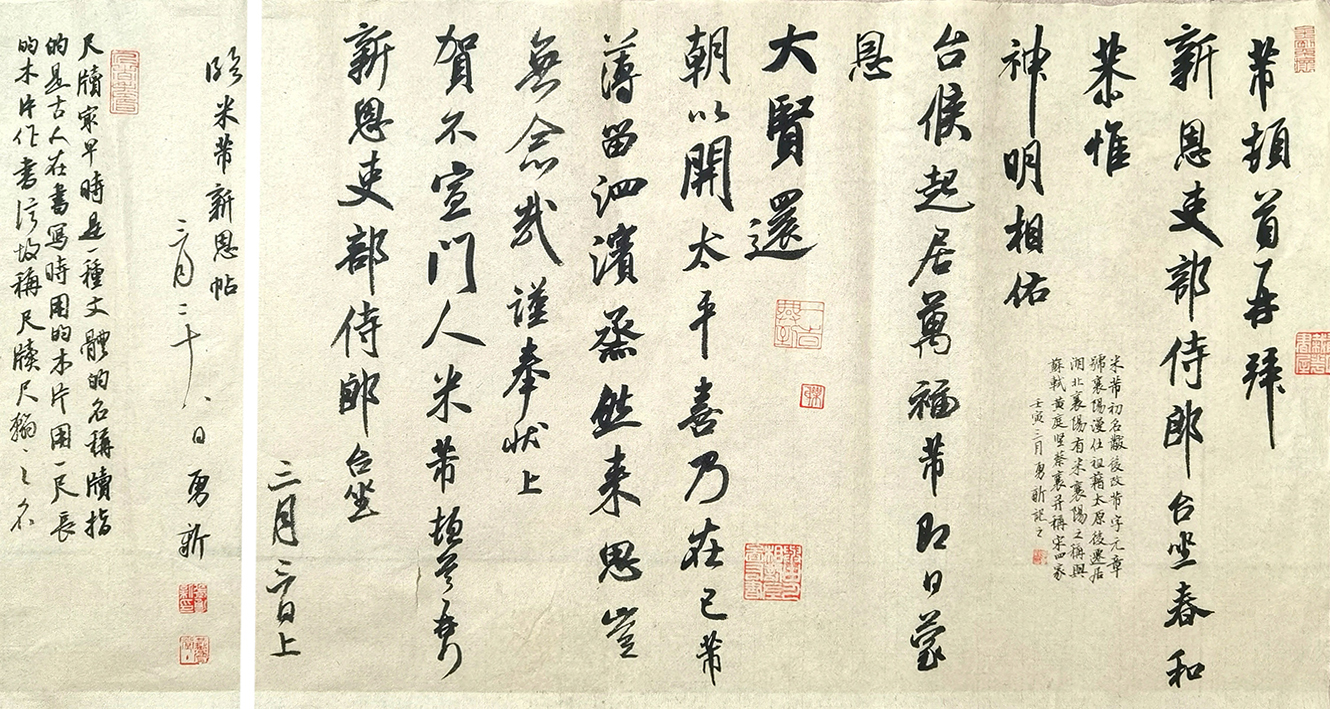 芾頓首再拜
新恩吏部侍郎台坐春和
恭惟
神明相佑
台候起居萬福芾即日蒙
恩
大賢還
朝以開太平喜乃在己芾
薄留泗濱烝然来思豈
無念哉謹奉状上
賀不宣門人米芾頓首再拜
新恩吏部侍郎台坐
三月二日上
米芾初名黻後改芾字元章
號襄陽漫仕祖籍太原後遷居
湖北襄陽有米襄陽之稱與
蘇軾黄庭坚蔡襄并稱宋四家
壬寅三月勇新記之
臨米芾新恩帖
三月二十八日勇新
尺牘最早時是一種文體的名稱牘指
的是古人在書寫時用的木片用一尺長
的木片作書信故稱尺牘尺翰之名